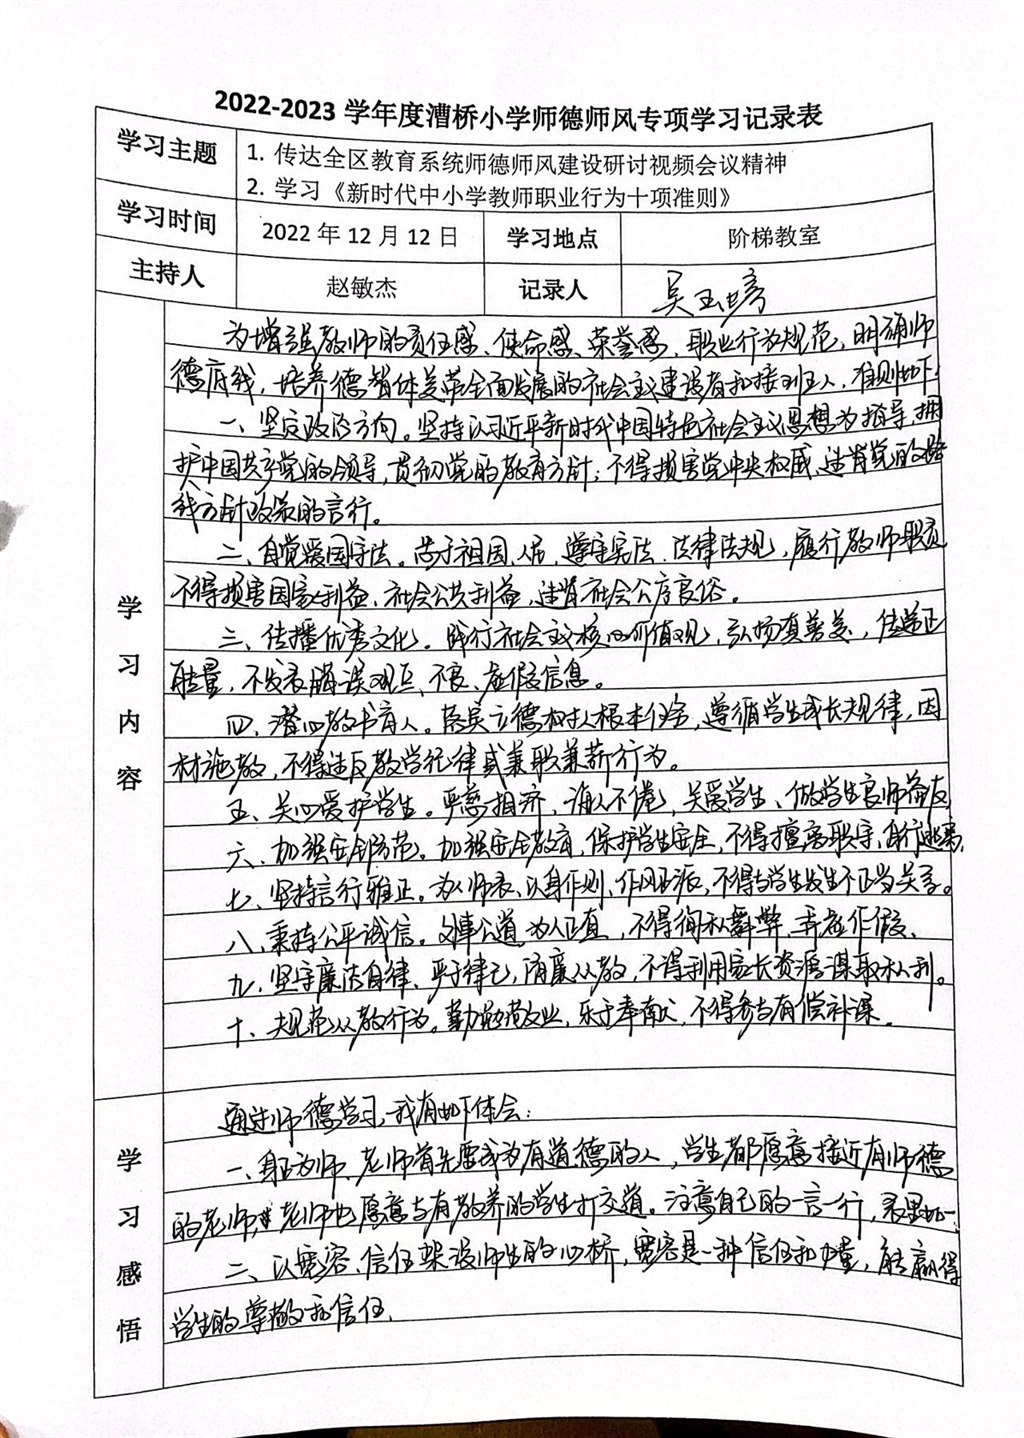 2022-2023 学年度漕桥小学师德师风专项学习记录表
学习主题
1. 传达全区教育系统师德师风建设研讨视频会议精神
2. 学习《新时代中小学教师职业行为十项准则》
学习时间 2022 年 12 月 12 日 学习地点 阶梯教室
主持人 赵敏杰 记录人 吴玉婷
学习内容
为增强教师的责任感、使命感、荣誉感、职业行为规范，明确师
德底线，培养德智体美劳全面发展的社会主义建设者和接班人，准则如下：
一、坚定政治方向。坚持以习近平新时代中国特色社会主义思想为指导，拥
护中国共产党的领导，贯彻党的教育方针；不得损害党中央权威、违背党的路
线方针政策的言行。
二、自觉爱国守法。忠于祖国、人民，遵守宪法、法律法规，履行教师职责
不得损害国家利益、社会公共利益，违背社会公序良俗。
三、传播优秀文化。践行社会主义核心价值观，弘扬真善美，传递正
能量，不发表错误观点、不良、虚假信息。
四、潜心教书育人。落实立德树人根本任务，遵循学生成长规律，因
材施教，不得违反教学纪律或兼职兼薪行为。
五、关心爱护学生。严慈相济，诲人不倦，关爱学生、做学生良师益友
六、加强安全防范。加强安全教育，保护学生安全，不得擅离职守，自行逃离，
七、坚持言行雅正。为人师表、以身作则、作风正派，不得与学生发生不正当关系。
八、秉持公平诚信。处事公道，为人正直，不得徇私舞弊、弄虚作假、
九、坚守廉洁自律、严于律己，清廉从教，不得利用家长资源谋取私利。
十、规范从教行为。勤勉敬业，乐于奉献，不得参与有偿补课。
学习感悟
通过师德学习，我有如下体会：
一、身正为师、老师首先要成为有道德的人，学生都愿意接近有师德
的老师，老师也愿意与有教养的学生打交道。注意自己的一言一行，表里如一；
二、以宽容、信任架设师生的心桥，宽容是一种信任和力量，能赢得
学生的尊敬和信任、